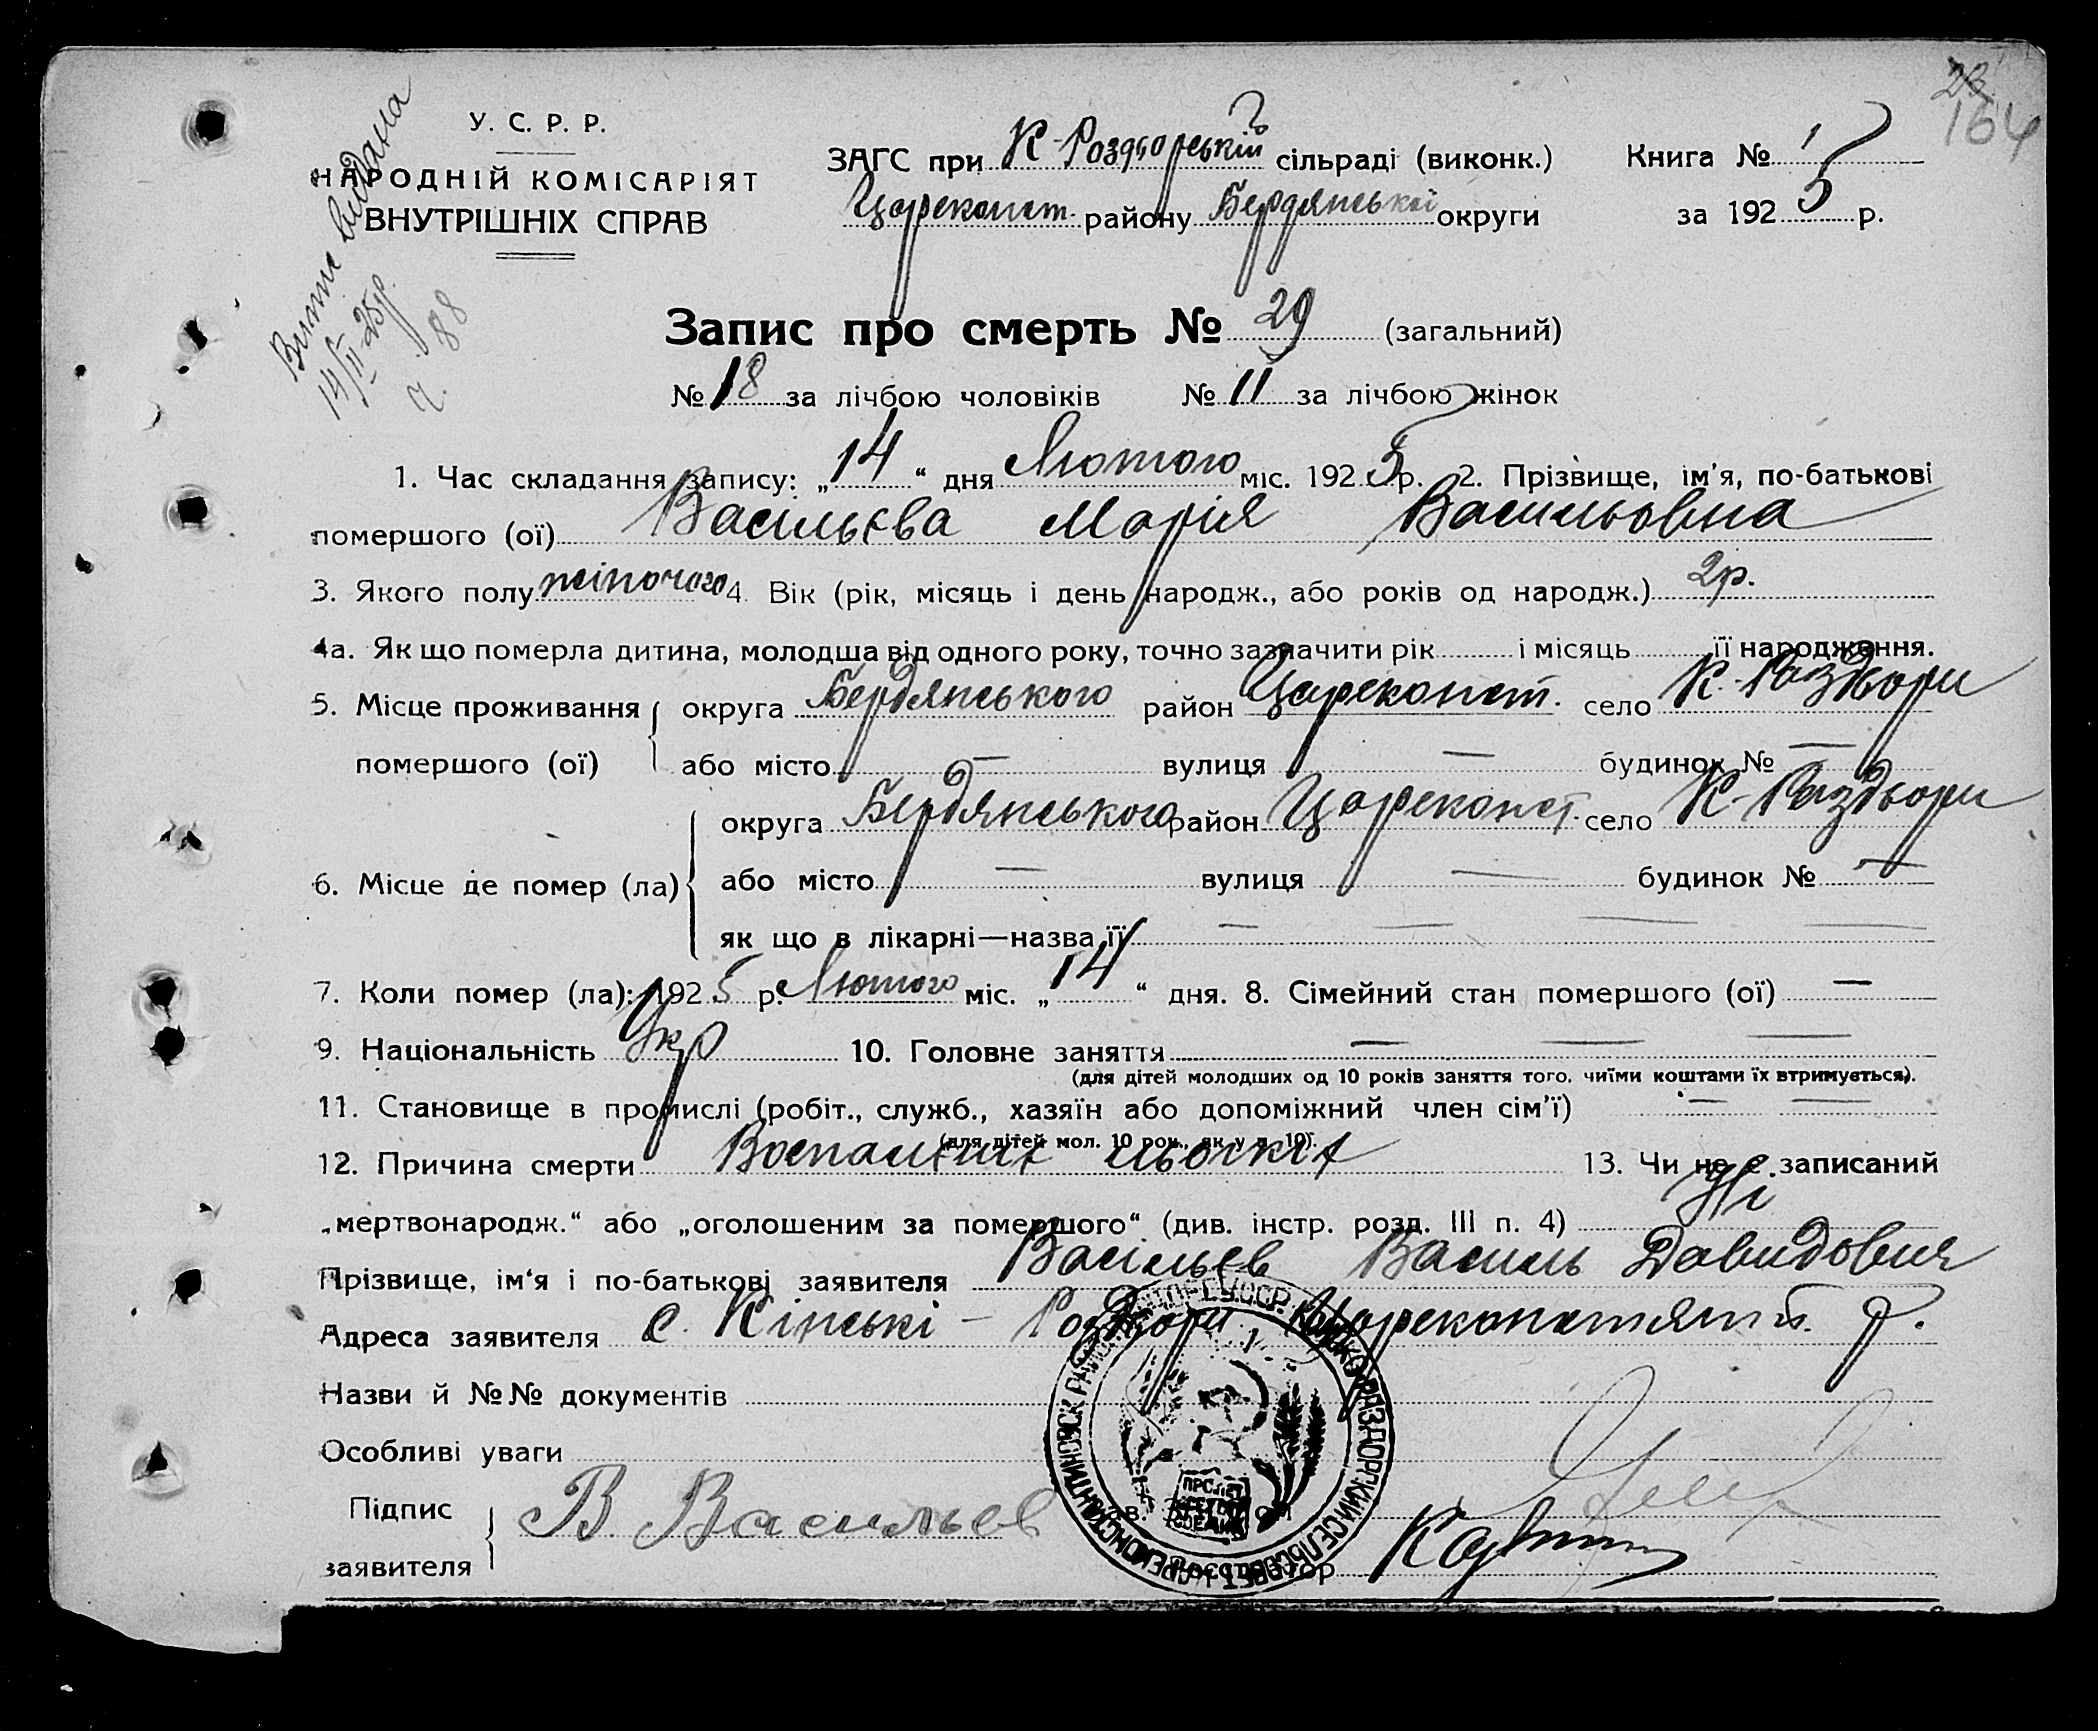 23
164
У. С. Р. Р.
НАРОДНІЙ КОМІСАРІЯТ
ВНУТРІШНІХ СПРАВ
Витяг видана
14/II-25р.
ч. 88
ЗАГС при К-Роздорській сільраді (виконк.)
Цареконст. району Бердянської округи
Книга № 1
за 1925 р.
Запис про смерть № 29 (загальний)
№ 18 за лічбою чоловіків № 11 за лічбою жінок
1. Час складання запису: „14“ дня Лютого міс. 1925 р. 2. Прізвище, ім'я, по-батькові
помершого (ої) Васильєва Марія Васильовна
3. Якого полу жіночого 4. Вік (рік, місяць і день народж., або років од народж.) 2р.
4а. Як що померла дитина, молодша від одного року, точно зазначити рік і місяць її народження.
5. Місце проживання помершого (ої) округа Бердянського район Цареконст. село К.-Раздори
або місто — вулиця — будинок № —
6. Місце де помер (ла) округа Бердянського район Цареконст. село К-Раздори
або місто — вулиця — будинок № —
як що в лікарні—назва її — — — —
7. Коли помер (ла): 1925 р. Лютого міс. „14“ дня. 8. Сімейний стан помершого (ої) —
9. Національність Укр 10. Головне заняття — — —
(для дітей молодших од 10 років заняття того, чиїми коштами їх втримується).
11. Становище в промислі (робіт., служб., хазяїн або допоміжний член сім'ї) — —
(для дітей мол. 10 рок., як у п. 10).
12. Причина смерти 13. Чи не є записаний
„мертвонародж.“ або „оголошеним за помершого“ (див. інстр. розд. III п. 4) Ні
Прізвище, ім'я і по-батькові заявителя Васільєв Василь Давидович
Адреса заявителя с. Кінські - Роздори Цареконстянт. р.
Назви й №№ документів
Особливі уваги
Підпис заявителя В. Васильев